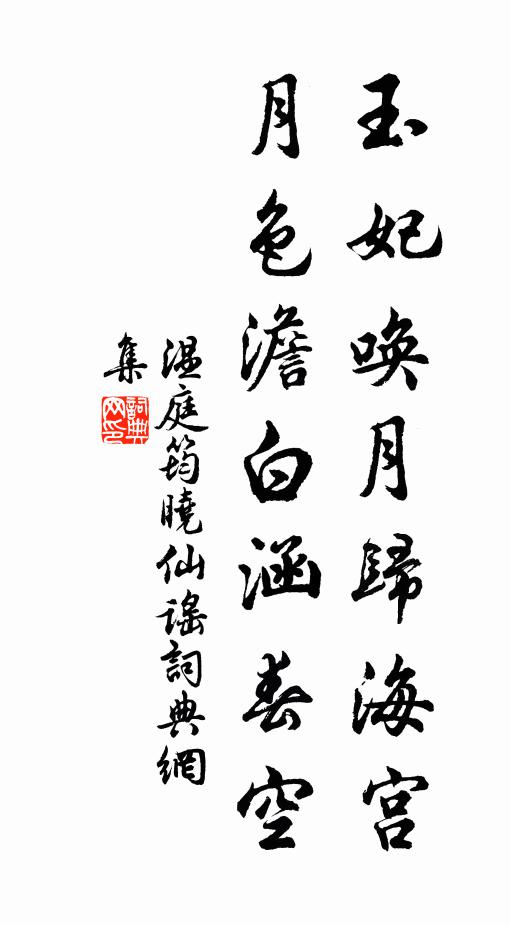 玉妃喚月歸海宮
月色澹白涵春空
溫庭筠曉仙謠詞典網
集
詞典
网印